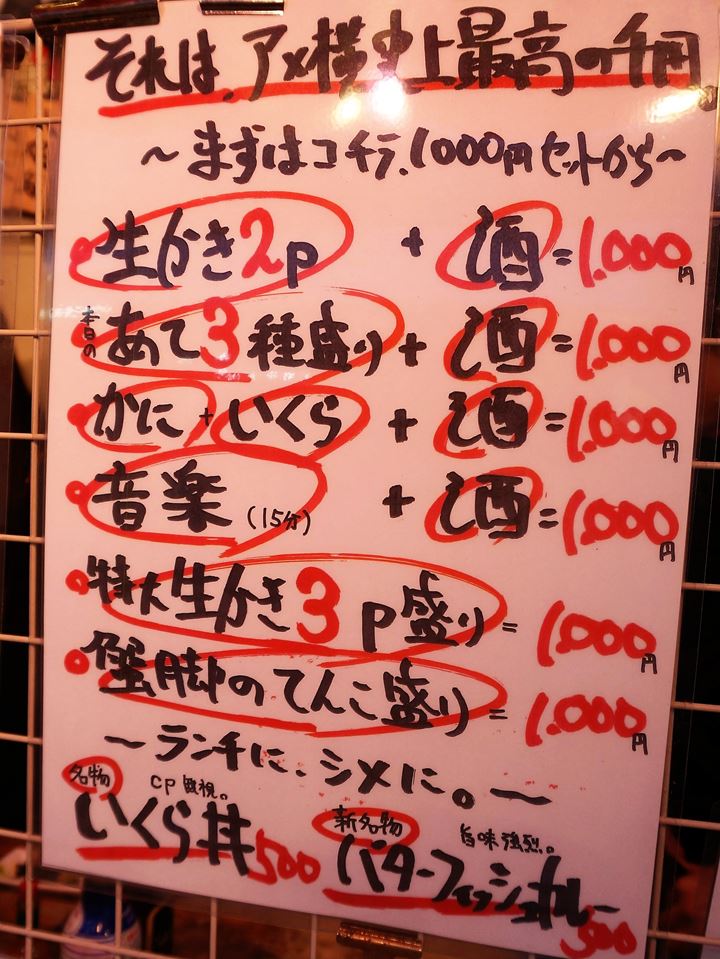 それは、アメ横史上最高の千円。
〜まずはコチラ、1000円セットから〜
生かき2p + 酒 = 1.000円
本日のあて3種盛り + 酒 = 1.000円
かに + いくら + 酒 = 1.000円
音楽(15分) + 酒 = 1.000円
特大生かき3p盛り = 1.000円
蟹脚のてんこ盛り = 1.000円
〜ランチに、シメに。〜
名物 cp無視。
いくら丼500
新名物 旨味強烈。
バターフィッシュカレー500